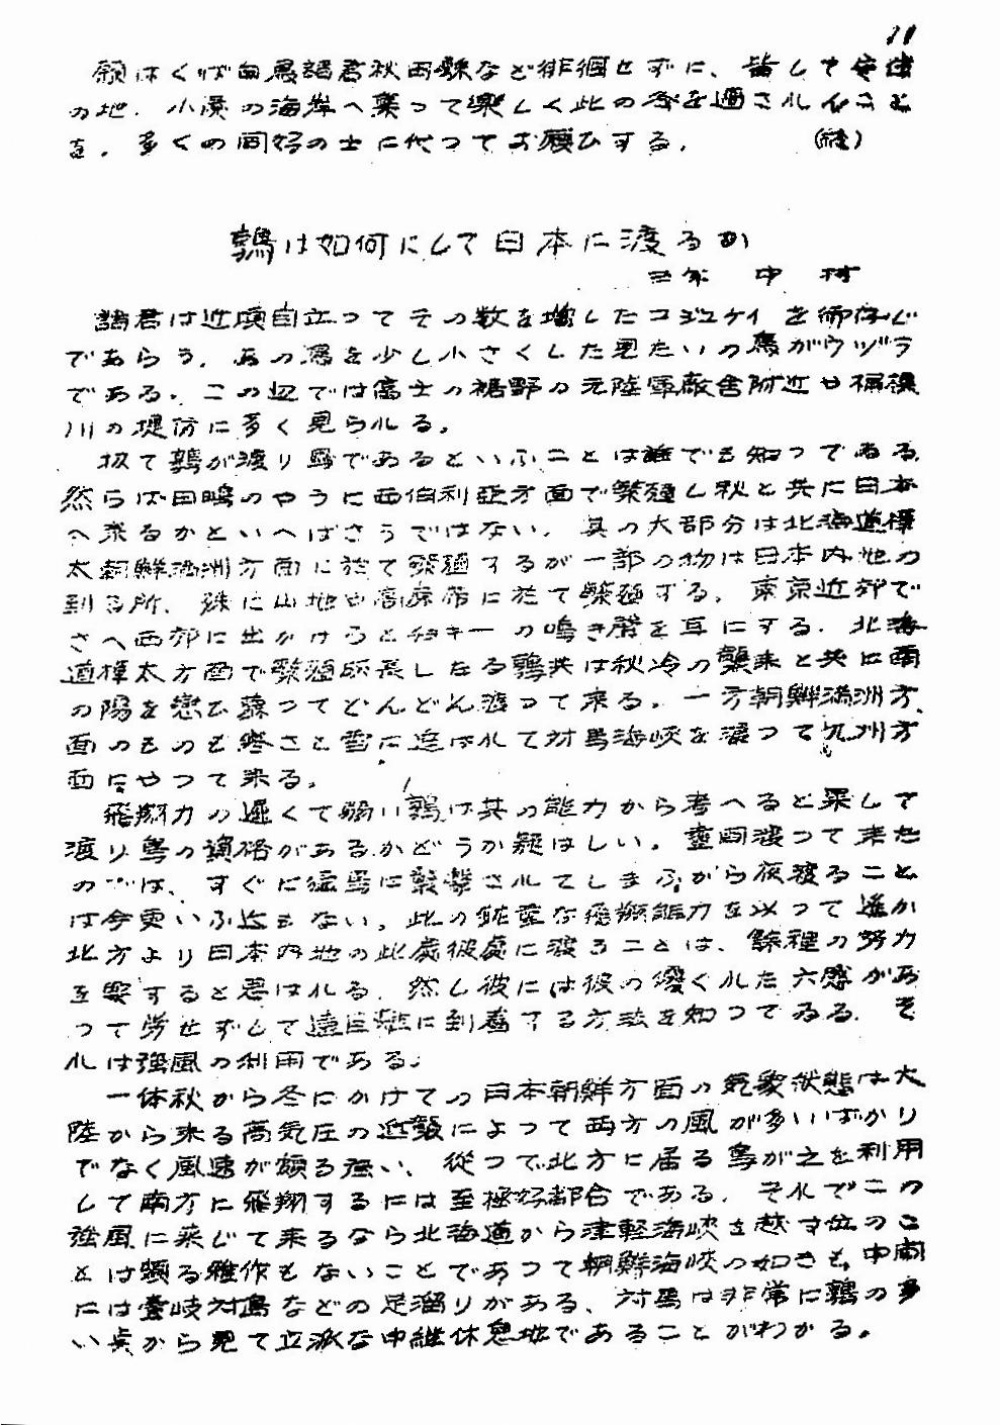 11
願はくば白鳥諸君秋田縣など徘徊せずに、皆して安住
の地、小湊の海岸へ集つて楽しく此の冬を過されんこと
を、多くの同好の士に代つてお願ひする。 (終)
鶉は如何にして日本に渡るか
三年 中村
諸君は近頃目立つてその数を増したコジュケイを御存じ
であらう。あの鳥を少し小さくした見たいの鳥がウヅラ
である。この辺では富士の裾野の元陸軍廠舎附近や相模
川の堤防に多く見られる。
扨て鶉が渡り鳥であるといふことは誰でも知つてゐる。
然らば田鴫のやうに西伯利亜方面で繁殖し秋と共に日本
へ来るかといへばさうではない。其の大部分は北海道樺
太朝鮮満洲方面に於て繁殖するが一部の物は日本内地の
到る所、殊に山地や高原帯に於て繁殖する。東京近郊で
さへ西郊に出かけるとチヨキーの鳴き声を耳にする。北海
道樺太方面で繁殖成長したる鶉共は秋冷の襲来と共に南
の陽を恋ひ慕つてどんどん渡つて来る。一方朝鮮満洲方
面のものも寒さと雪に追はれて対馬海峡を渡つて九州方
面にやつて来る。
飛翔力の遅くて弱い鶉は其の能力から考へると果して
渡り鳥の資格があるかどうか疑はしい。昼間渡つて来た
のでは、すぐに猛鳥に襲撃されてしまふから夜渡ること
は今更いふ迄もない。此の貧弱な飛翔能力を以つて遙か
北方より日本内地の此處彼處に渡ることは、餘程の努力
を要すると思はれる。然し彼には彼の優くれた六感があ
つて労せずして遠目的に到着する方法を知つてゐる。そ
れは強風の利用である。
一体秋から冬にかけての日本朝鮮方面の気象状態は大
陸から来る高気圧の進襲によつて西方の風が多いばかり
でなく風速が頗る強い、従つて北方に居る鳥が之を利用
して南方に飛翔するには至極好都合である。それでこの
強風に乗じて来るなら北海道から津軽海峡を越す位のこ
とは頗る雑作もないことであつて朝鮮海峡の如きも、中間
には壹岐対島などの足溜りがある、対馬は非常に鶉の多
い点から見て立派な中継休息地であることがわかる。